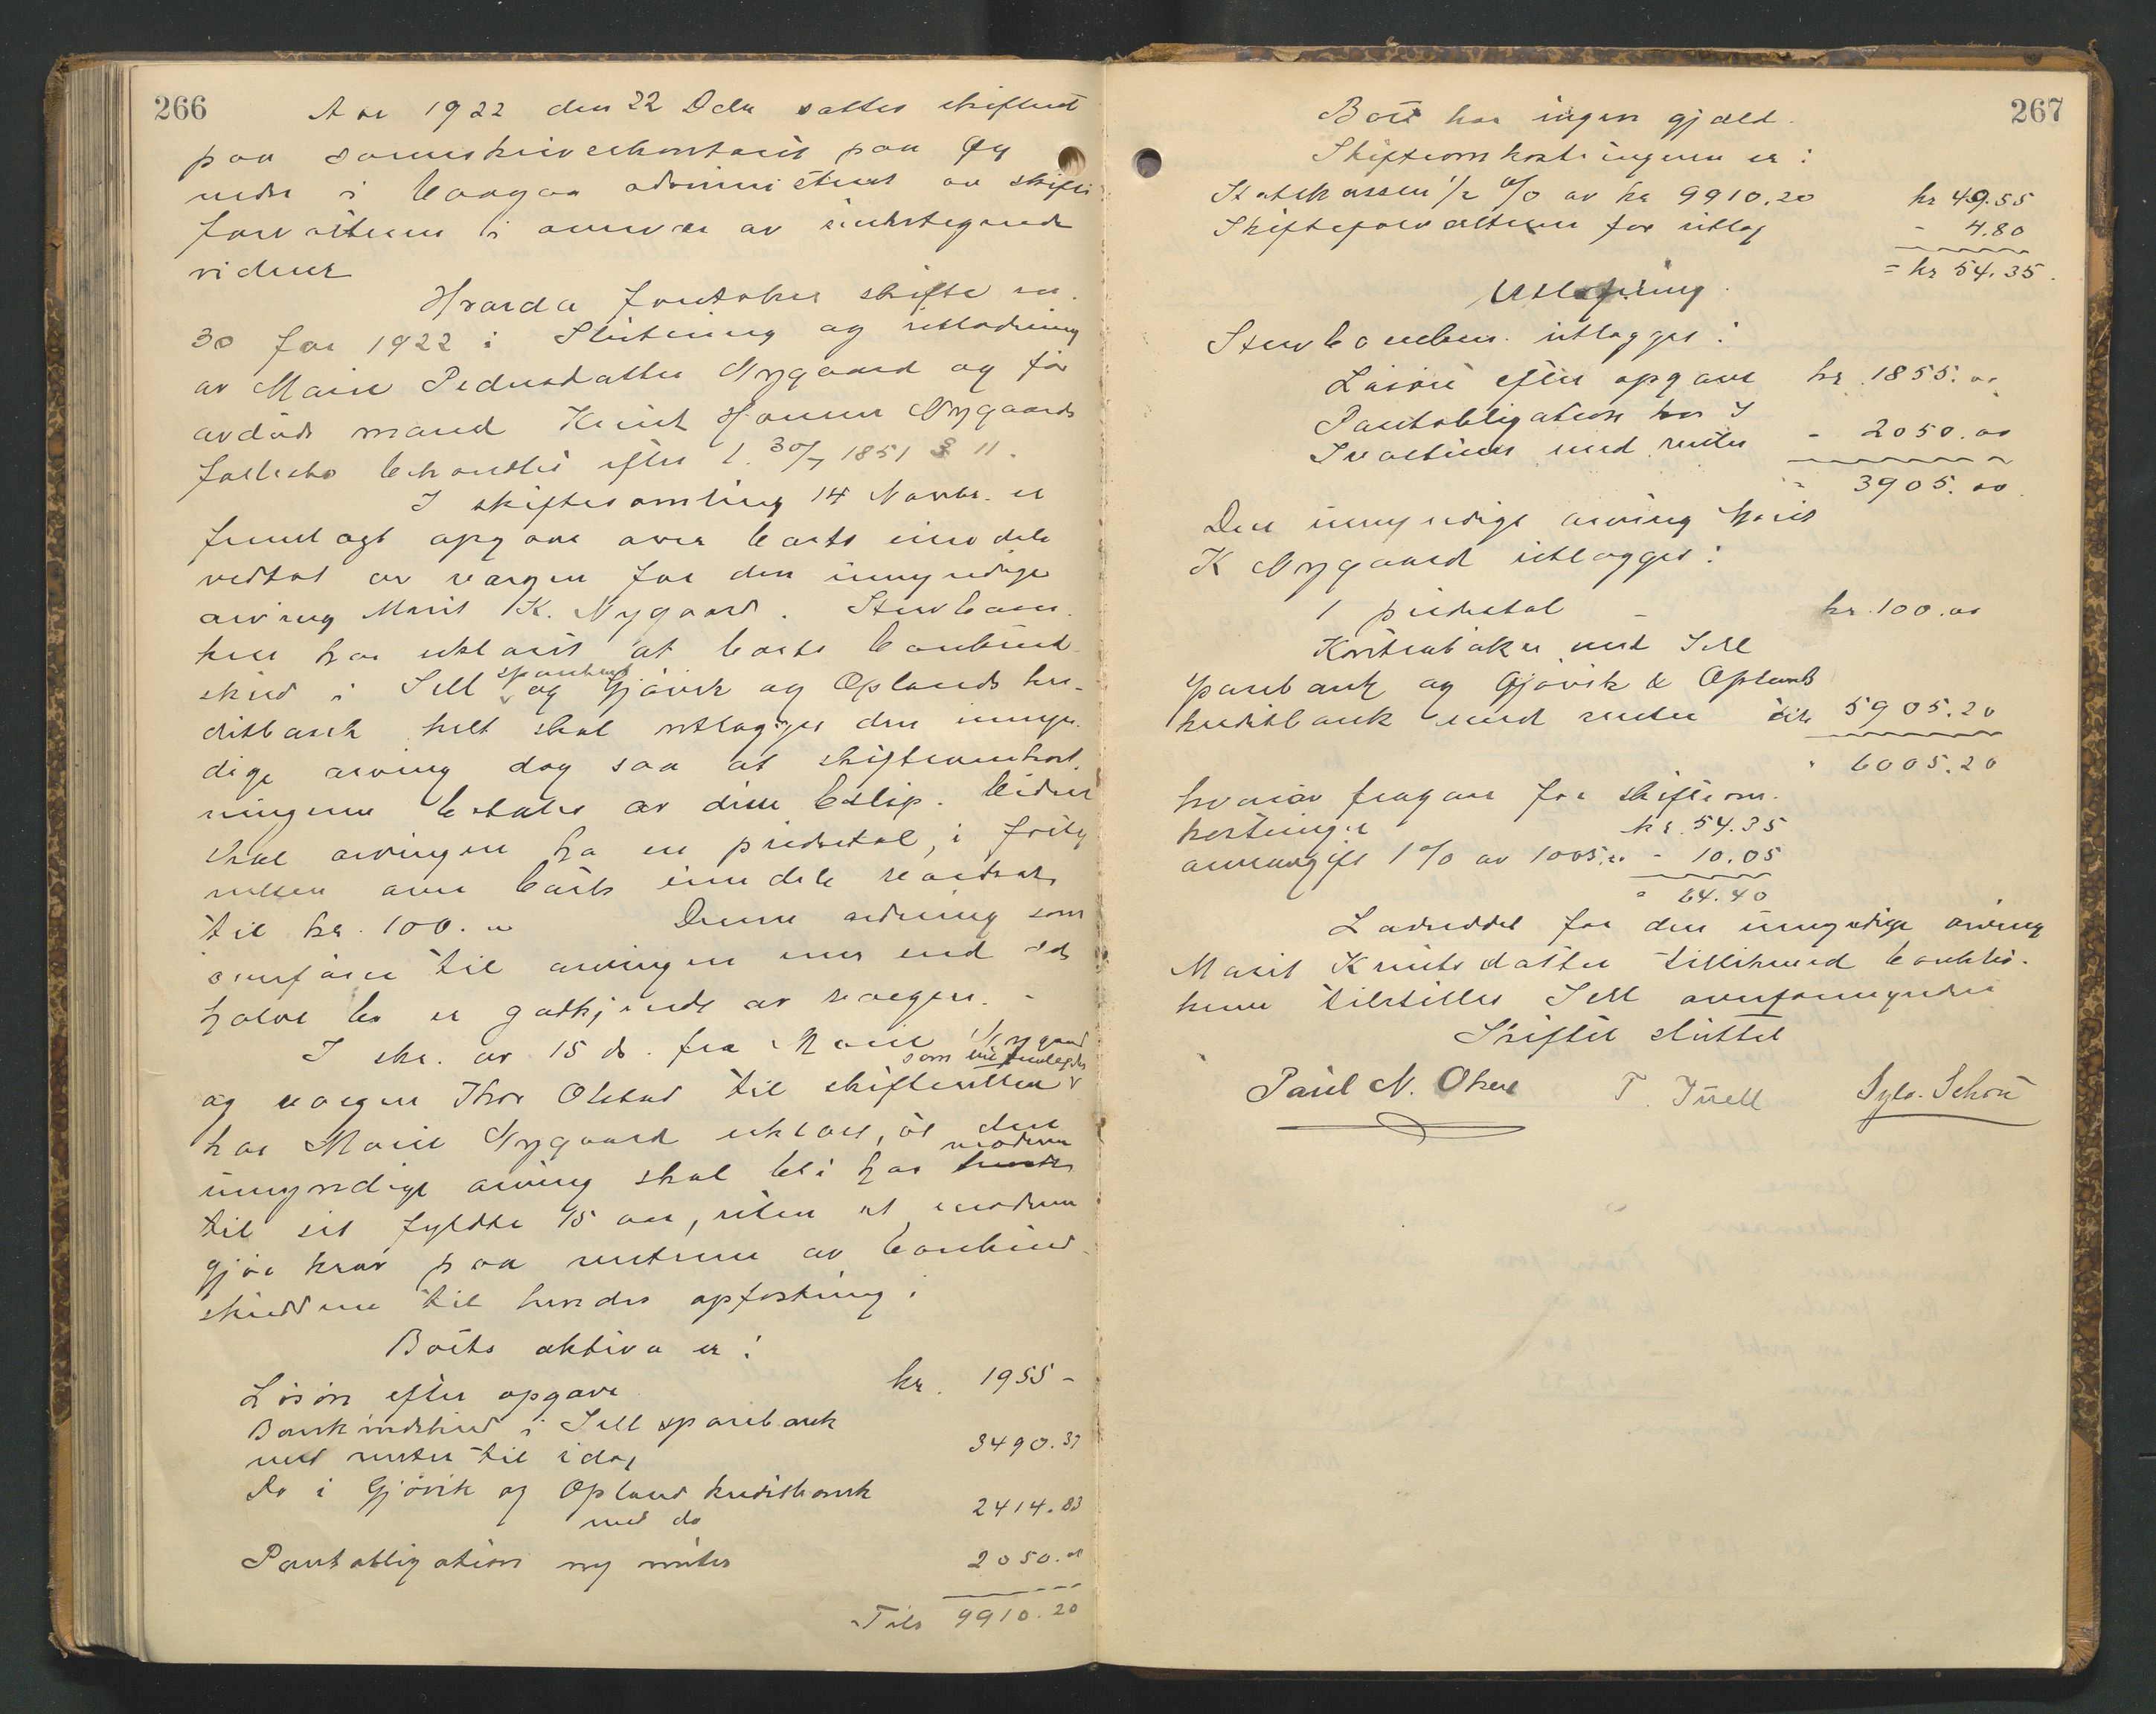 266
Aar 1922 den 22 Decbr sattes skifteret
paa sorenskriverkontoret paa Ny
nedre i Vaagaa administrert av skifte
forvalteren i nærvær av undertegnede
vidner
Hvorda foretokes skifte nr.
30 for 1922: Slutning og utlodning
av Marie Pedersdatter Nygaard og før
avdøde mand Knut Hansen Nygaards
fællesbo behandlet efter l. 30/7 1851 § 11.
I skiftesamling 14 Novbr. er
fremlagt opgave over boets eiendele
vedtat av værgen for den umyndige
arving Marit K. Nygaard. Stervboen
ken har erklært at boets bankind-
skud i Sell sparebank og Gjøvik og Oplands kre-
ditbank helt skal utlægges den umyn
dige arving dog saa at skifteomkost.
ningerne betales av disse beløp. Videre
skal arvingen ha en piedestal, i forteg
nelsen over boets eiendele værdsat
til kr. 100.00 Denne ordning som
overfører til arvingen mer end det
halve bo er godkjendt av værgen. -
I skr. av 15 ds. fra Marie Nygaard
og værgen Thor Olstad til skifteretten som fremlegdes
har Marie Nygaard erklært, at den
umyndige arving skal bli hos moderen
til sit fyldte 15 aar, uten at moderen
gjør krav paa renterne av bankind-
skuddene til hendes opfostring.
Boets aktiva er:
Løsøre efter opgave kr. 1955 -
Bankindskud i Sell sparebank
med renter til idag 3490.37
Do i Gjøvik og Opland kreditbank
med do 2414.83
Pantobligation og renter 2050.00
Tils 9910.20
267
Boet har ingen gjæld.
Skifteomkostningerne er:
Statskassen 1/2 % av kr 9910.20 kr 49.55
Skifteforvalteren for utlæg - 4.80
= kr 54.35.
Utlægning.
Stervboenken utlægges:
Løsøre efter opgave kr. 1855.00
Pantobligation hos I
med renter - 2050.00
3905.00
Den umyndige arving Marit
K Nygaard utlægges:
1 piedestal - kr. 100.00
Kontrabøker med Sell
sparebank og Gjøvik & Oplands
kreditbank med renter tils 5905.20
" 6005.20
hvorav fragaar for skifteom.
kostninger kr. 54.35
arveavgift 1 % av 1005.00 - 10.05
" 64.40
Lodseddel for den umyndige arving
Marit Knutsdatter tillikemed bankbø.
kene tilstilles Sell overformynderi
Skiftet sluttet
Paul N. Oken T. Juell Sylv. Schou